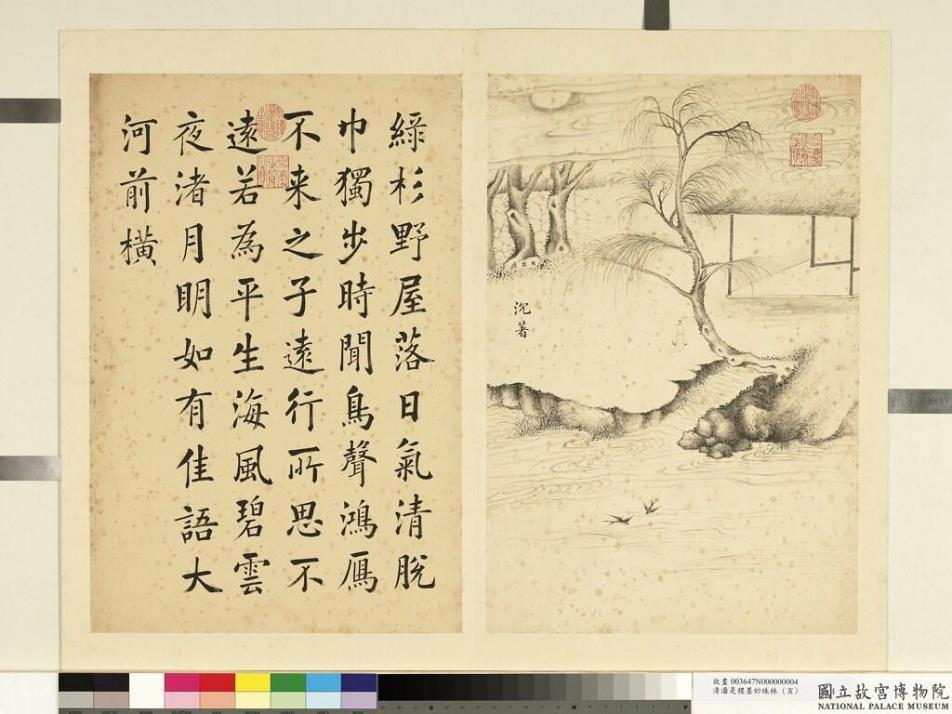 綠杉野屋落日氣清脫
巾獨步時聞鳥聲鴻雁
不来之子遠行所思不
遠若為平生海風碧雲
夜渚月明如有佳語大
河前橫
沉著
故畫 003647N000000004
清潘是稷墨妙珠林（亥）
國立故宮博物院
NATIONAL PALACE MUSEUM